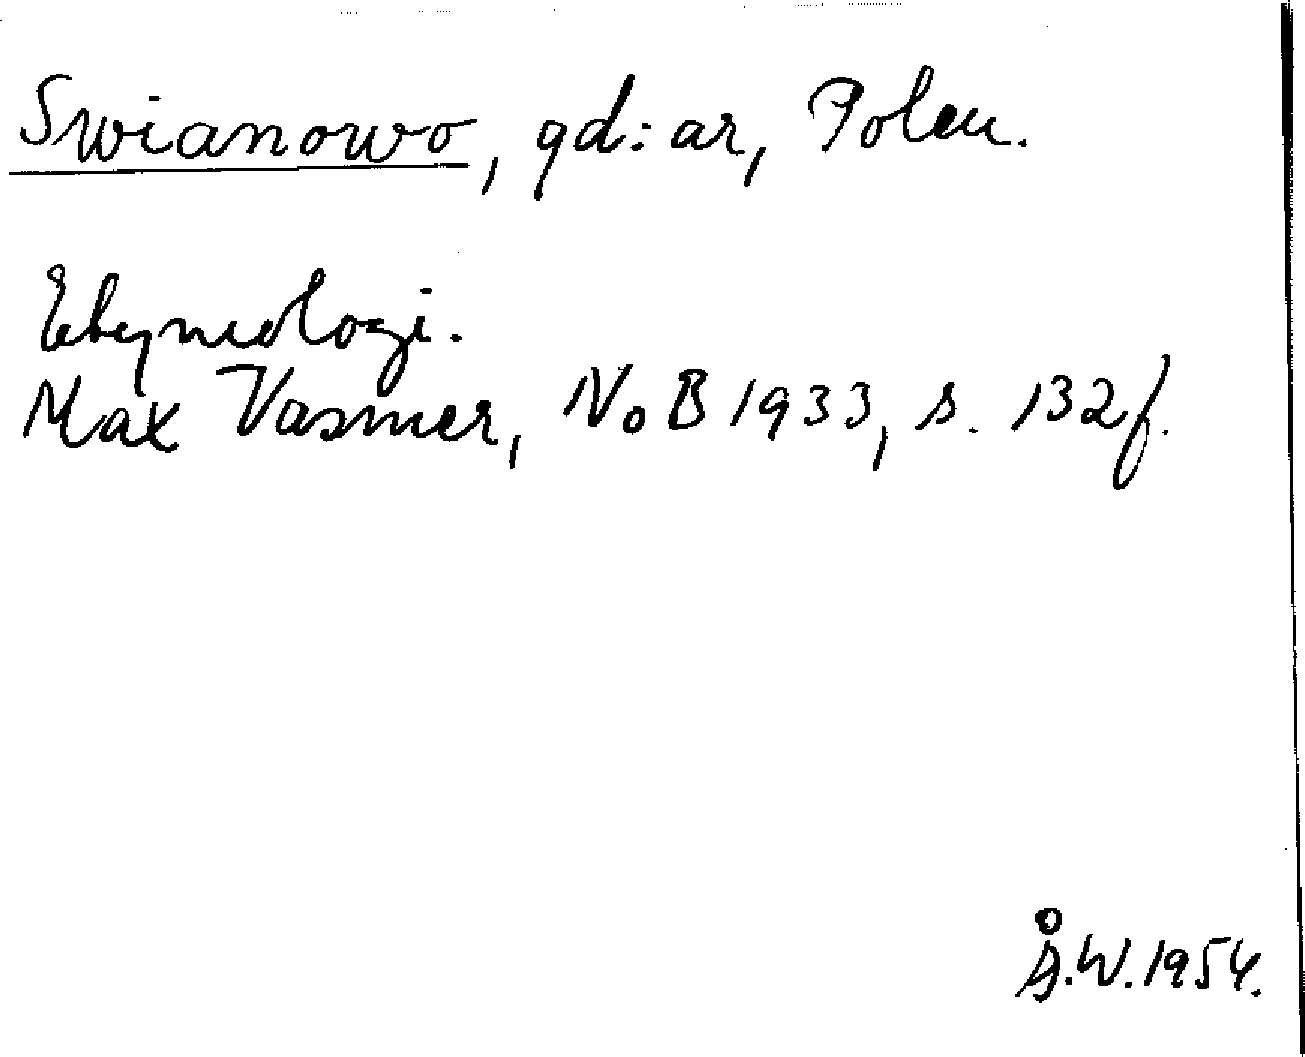 Swianowo, gd:ar, Polen.
Etymologi.
Max Vasmer, NoB 1933, s. 132f.
Å.W. 1954.